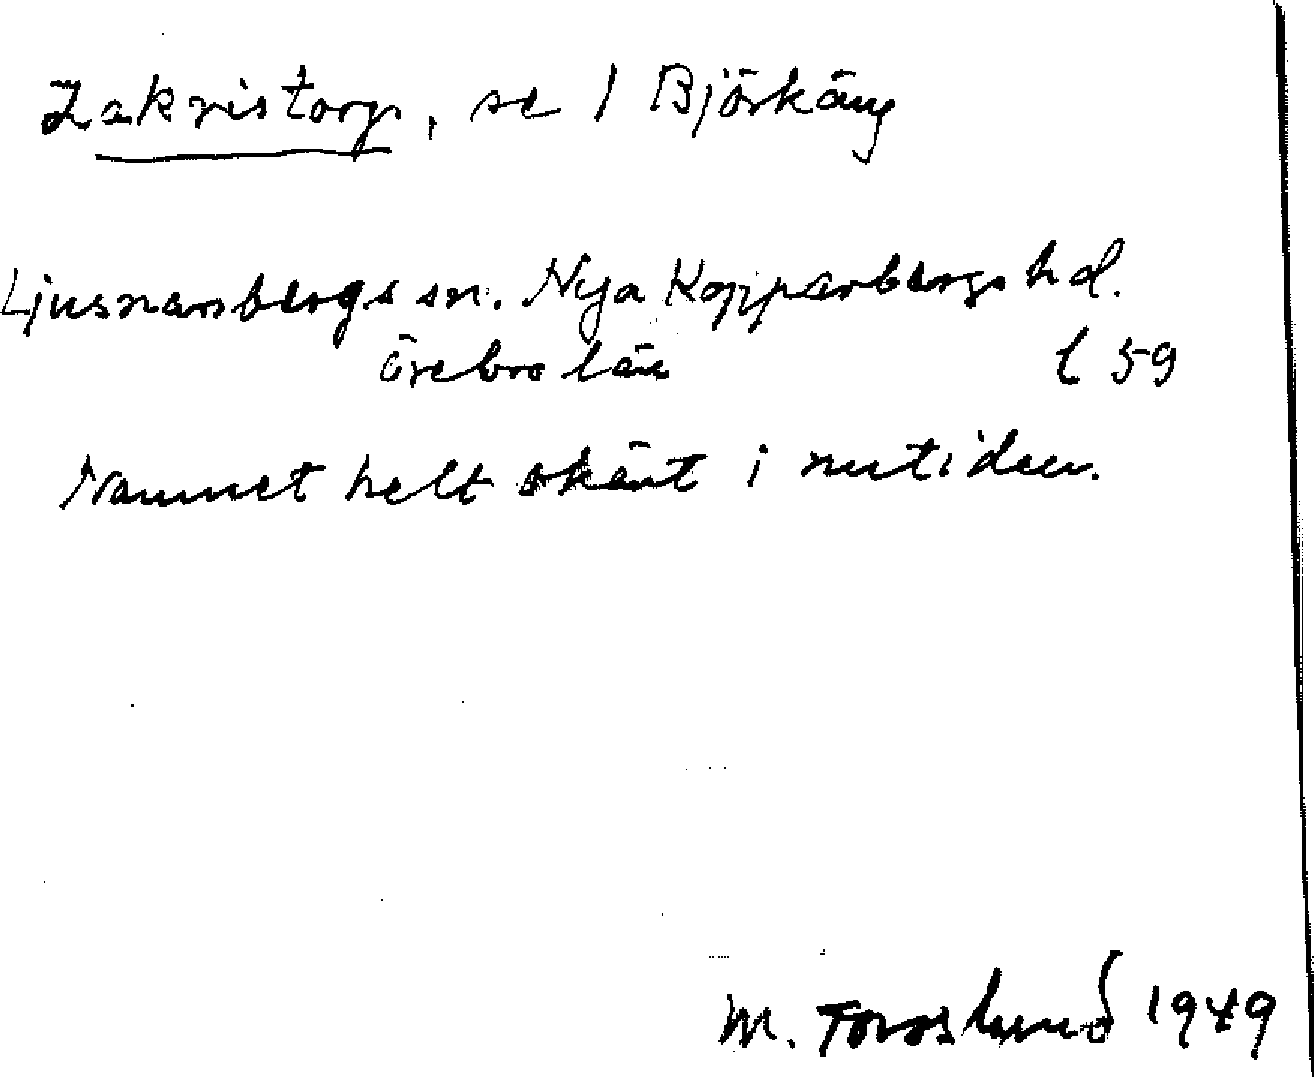 Zakristorp, se 1 Björkäng
Ljusnarsbergs sn. Nya Kopparbergs hd.
Örebro län l 59
Namnet helt okänt i nutiden.
M. Forslund 1949